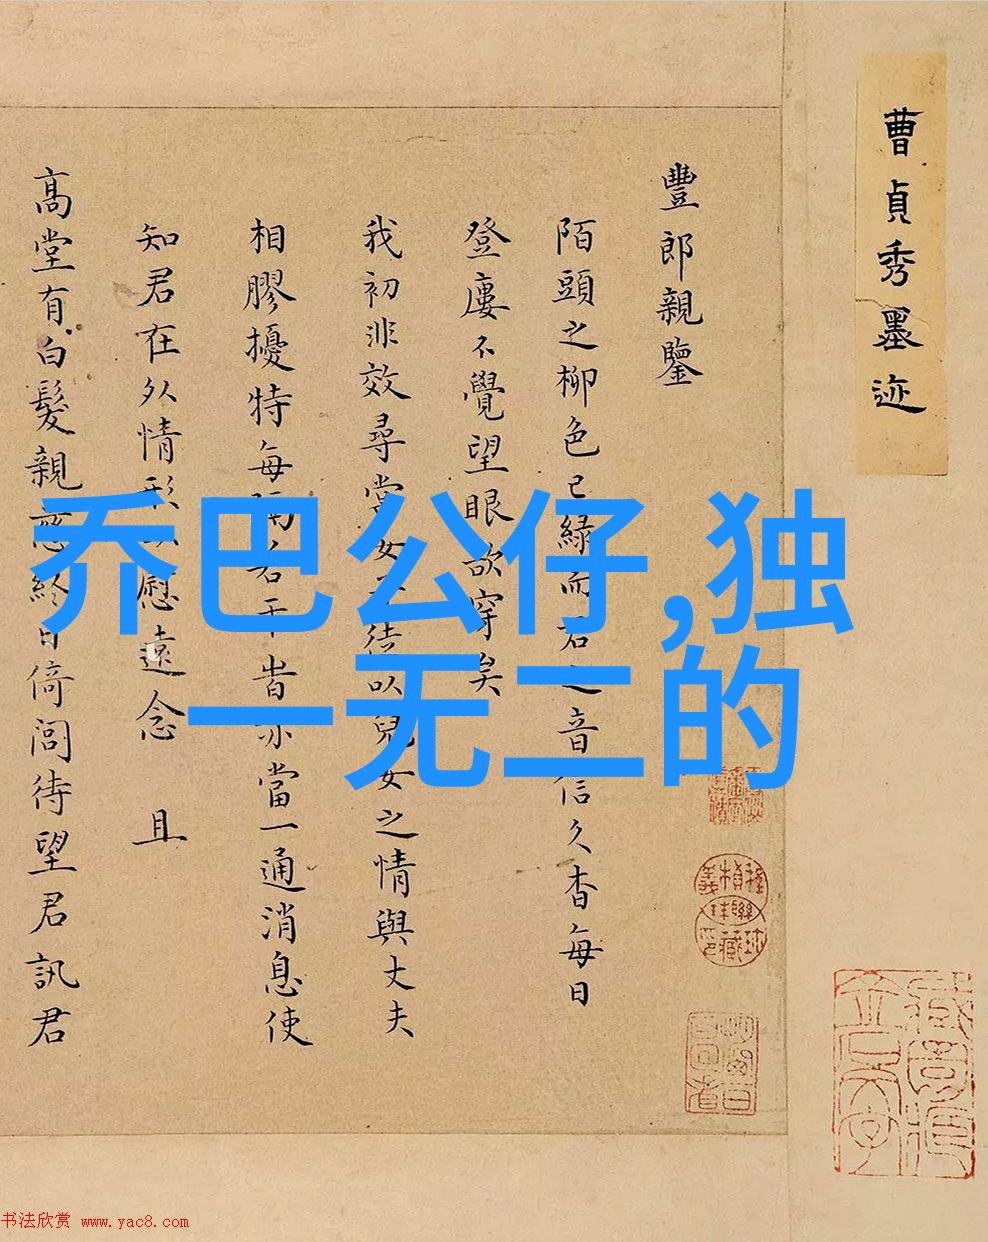 曹貞秀墨迹
豐郎親鑒
陌頭之柳色已綠而君之音信久杳每日
登廔不覺望眼欲穿矣
我初非效尋常女子徒以兒女之情與丈夫
相膠擾特每隔若干旹亦當一通消息使
知君在外情形以慰遠念 且
高堂有白髮親慈終日倚閭待望君訊君
乔巴公仔,独
一无二的
书法欣赏 www.yac8.com